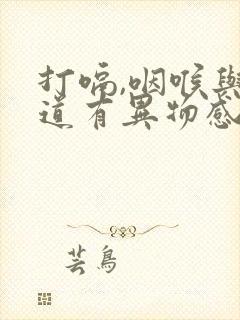 打嗝,咽喉與
道有異物感
芸鳥